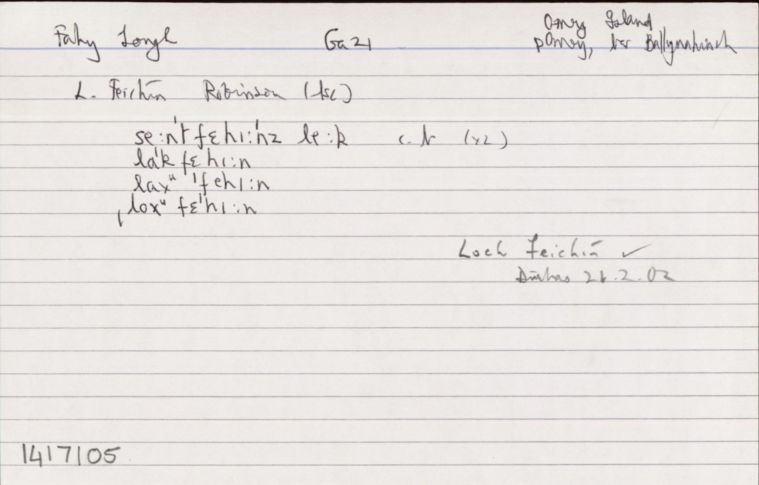 Fahy Lough Ga 21 Omey Island
pOmey, bar Ballynahinch
L. Feichín Robinson (tsc)
se:nˈt fɛhɪ:nz le:k c.b (x2)
lak fɛˈhɪ:n
lax" 'fehɪ:n
lox" fɛ'hɪ:n
Loch Feichín ✓
21.2.02
1417105